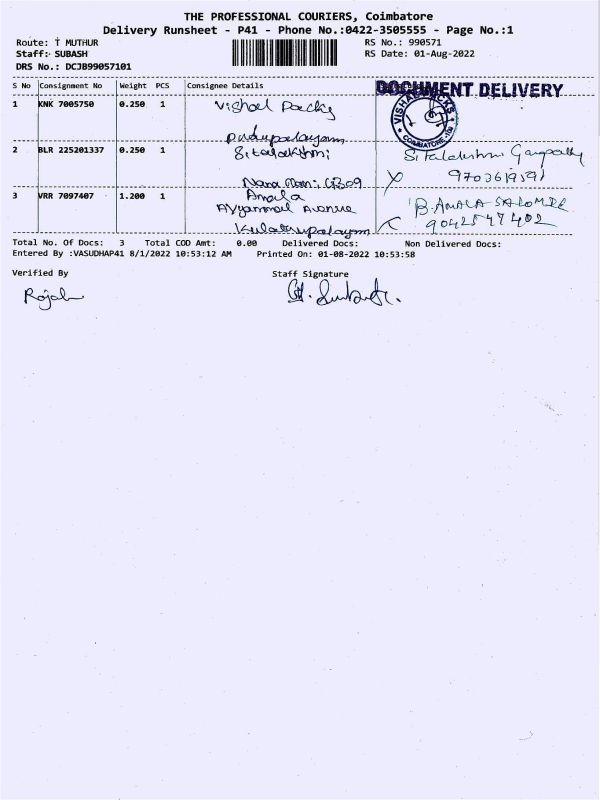 THE PROFESSIONAL COURIERS, Coimbatore
Delivery Runsheet - P41 - Phone No.:0422-3505555 - Page No.:1
Route: T MUTHUR
RS No.: 990571
Staff: SUBASH
RS Date: 01-Aug-2022
DRS No.: DCJB99057101
S No Consignment No Weight PCS Consignee Details
DOCUMENT DELIVERY
1 KNK 7005750 0.250 1 Vishal Packs
VISHAL PACKS
COIMBATORE
Pudupalayam
2 BLR 225201337 0.250 1 Sitalakshmi
Sitalakshmi Ganpathy
9703619591
3 VRR 7097407 1.200 1 Amala
Ayyammal Avenue
B. AMALA SALOMEE
9042547402
Kulathupalayam
Total No. Of Docs: 3 Total COD Amt: 0.00 Delivered Docs: Non Delivered Docs:
Entered By :VASUDHAP41 8/1/2022 10:53:12 AM Printed On: 01-08-2022 10:53:58
Verified By
Staff Signature